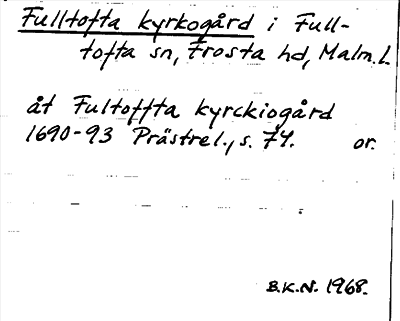 Fulltofta kyrkogård i Full-
tofta sn, Frosta hd, Malm.l.
åt Fultoffta kyrckiogård
1690-93 Prästrel., s. 74. or.
B.K.N. 1968.